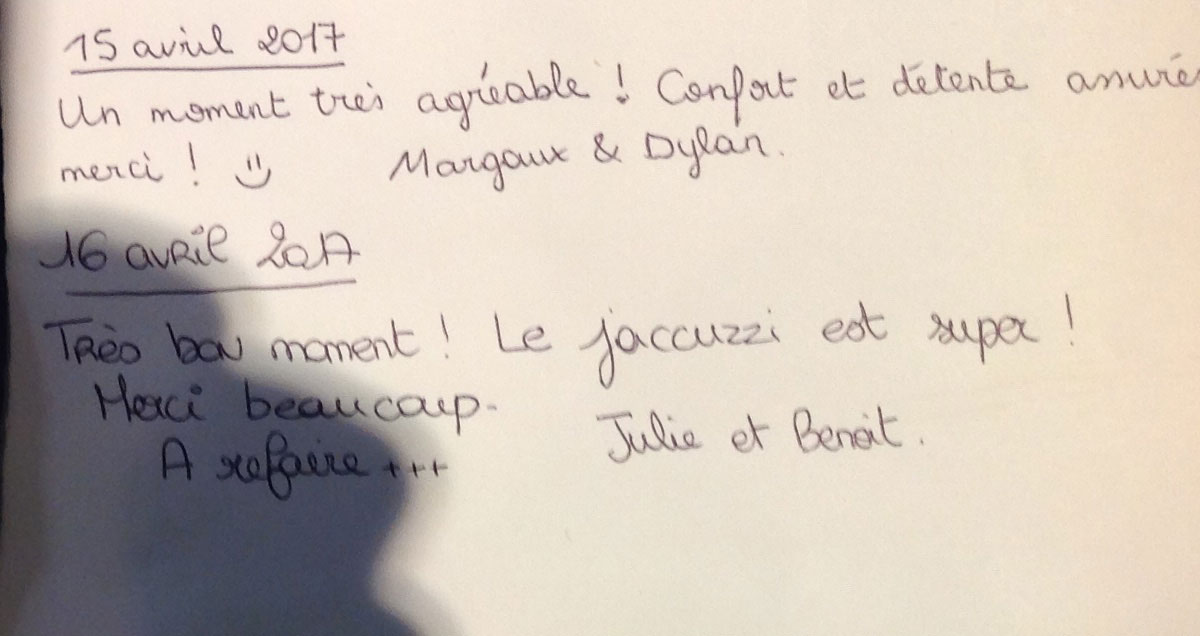 15 avril 2017
Un moment très agréable ! Confort et détente assurés
merci ! :)
Margaux & Dylan.
16 avril 2017
Très bon moment ! Le jaccuzzi est super !
Merci beaucoup.
A refaire +++
Julie et Benoit.